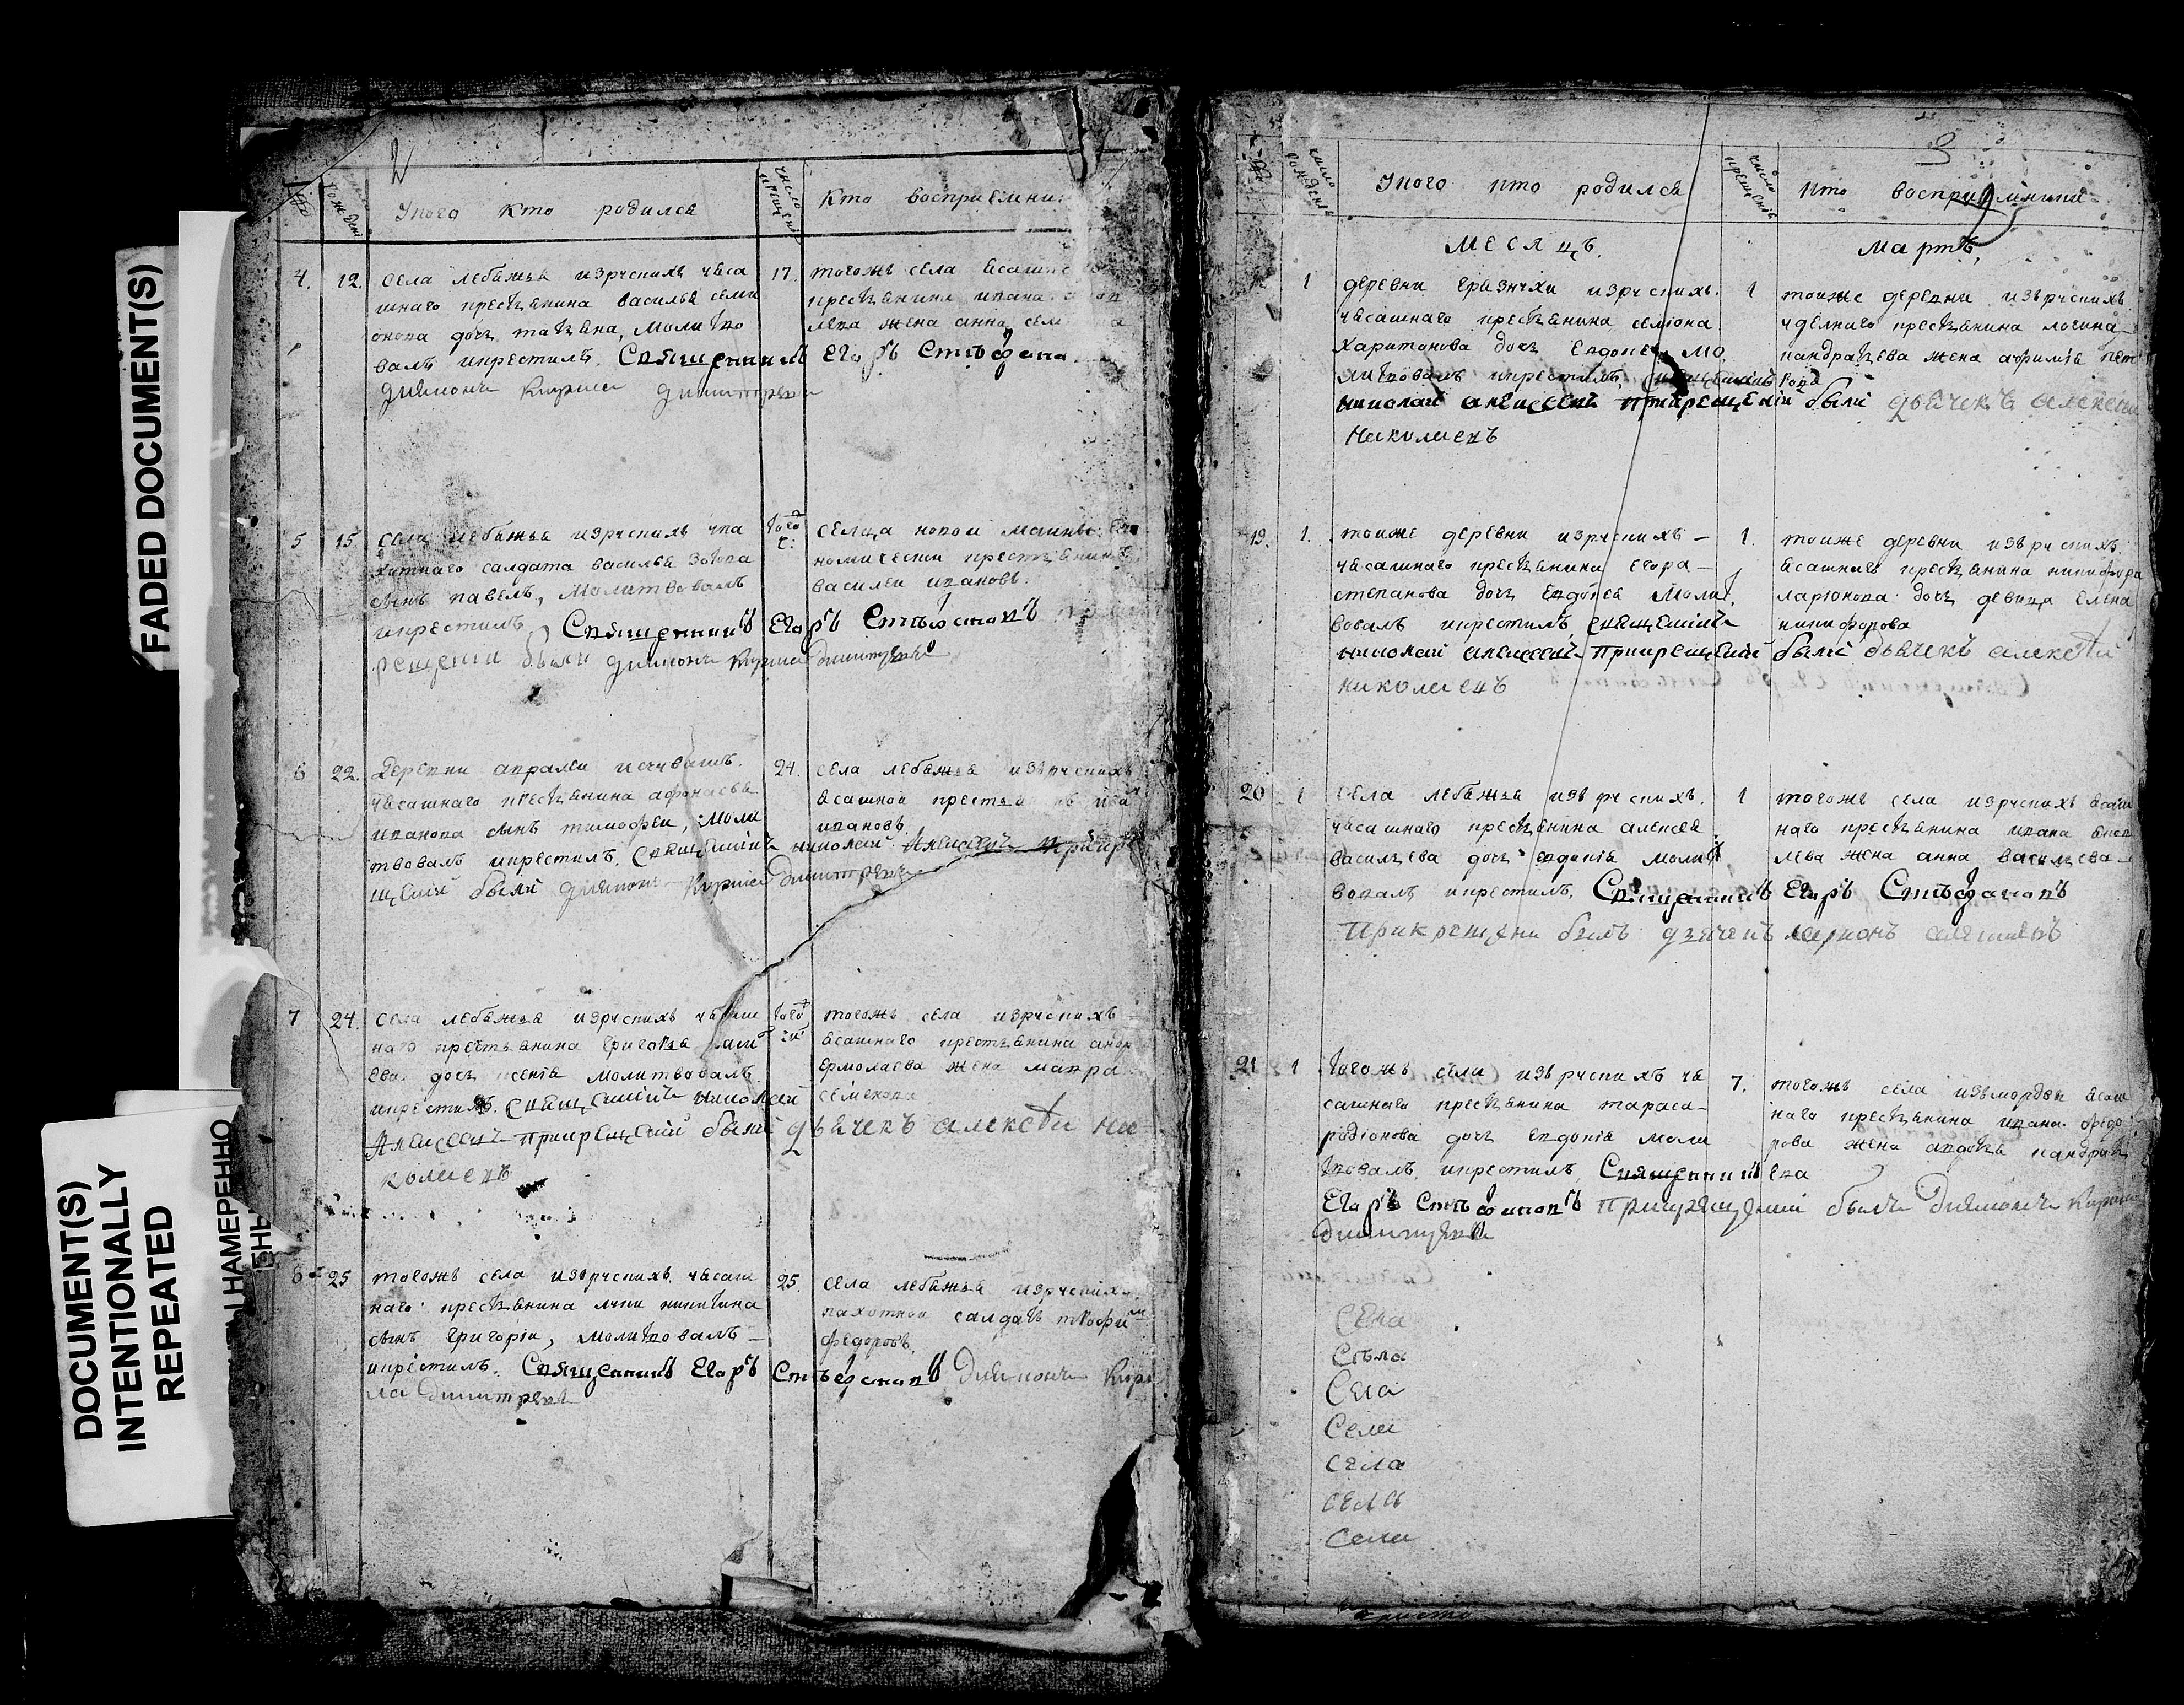 FADED DOCUMENT(S)
DOCUMENT(S)
INTENTIONALLY
REPEATED
НАМЕРЕННО
2
У кого кто родился
число крещения
Кто восприемник
4. 12. села лебяжья изрускихъ чеса
шнаго крестьянина василья семи
онова дочь татьяна, молитво
валъ икрестилъ. Священникъ Егоръ Стефановъ
дияконъ Кирила димитревъ
17. тогожъ села
крестьянина ивана
лева жена анна
5 15 села лебяжья изрускихъ
хатнаго салдата василья зотова
сынъ павелъ, молитвовалъ
икрестилъ, Священникъ Егоръ Стефановъ
рещении были дияконъ Кирила димитревъ
того ч:
селца новои маины
номическои крестьянинъ
василеи ивановъ.
6 22. Деревни
чесашнаго крестьянина афонасья
иванова сынъ тимофеи, моли
твовалъ икрестилъ. Священникъ николаи Алексеевъ прикре
щении были дияконъ Кирила димитревъ
24. села лебяжья изърускихъ
ясашной крестья
ивановъ
7 24. села лебяжья изрускихъ
наго крестьянина григорья
ева дочь ксения молитвовалъ
икрестилъ. священникъ николаи
Алексеевъ прикрещении были дьячекъ алексеи ни
колаевъ
того
тогожъ села изрускихъ
ясашнаго крестьянина
ермолаева жена мавра
семенова
8 25 тогожъ села изърускихъ чесаш
наго крестьянина луки никитина
сынъ григории, молитвовалъ
икрестилъ. Священникъ Егоръ Стефановъ дияконъ Кири
ла димитревъ
25. села лебяжья изрускихъ
пахотной салдатъ трофимъ
федоровъ.
3
число рождения
У кого кто родился
число крещения
кто восприемники
месяцъ.
мартъ,
1 деревни грязнухи изрускихъ.
чесашнаго крестьянина семиона
харитонова дочь евдокея, мо
литвовалъ икрестилъ, священникъ
николаи алексеевъ прикрещении были дьячекъ алексеи
николаевъ
1 тоиже деревни изърускихъ
уделнаго крестьянина логина
кандратьева жена афимья пет
рова
19. 1. тоиже деревни изрускихъ
чесашнаго крестьянина егора
степанова дочь евдокея молит
вовалъ икрестилъ, священникъ
николаи алексеевъ прикрещении были дьячекъ алексеи
николаевъ
1. тоиже деревни изърускихъ
ясашнаго крестьянина никифора
ларионова дочь девица елена
никифорова
20 1 села лебяжья изърускихъ.
чесашнаго крестьянина алексея
васильева дочь евдокия молит
вовалъ икрестилъ, Священникъ Егоръ Стефановъ
Прикрещени былъ дьячекъ ларионъ
1 тогожъ села изрускихъ ясаш
наго крестьянина ивана
лева жена анна васильева
21 1 тогожъ села изърускихъ че
сашнаго крестьянина тараса
родионова дочь евдокия моли
твовалъ икрестилъ, Священникъ
Егоръ Стефановъ прикрещении былъ Дияконъ Кирила
димитревъ
7. тогожъ села измордвы ясаш
наго крестьянина ивана федо
рова жена авдотья кандрать
ева
Села
Села
Села
Села
Села
села
Села